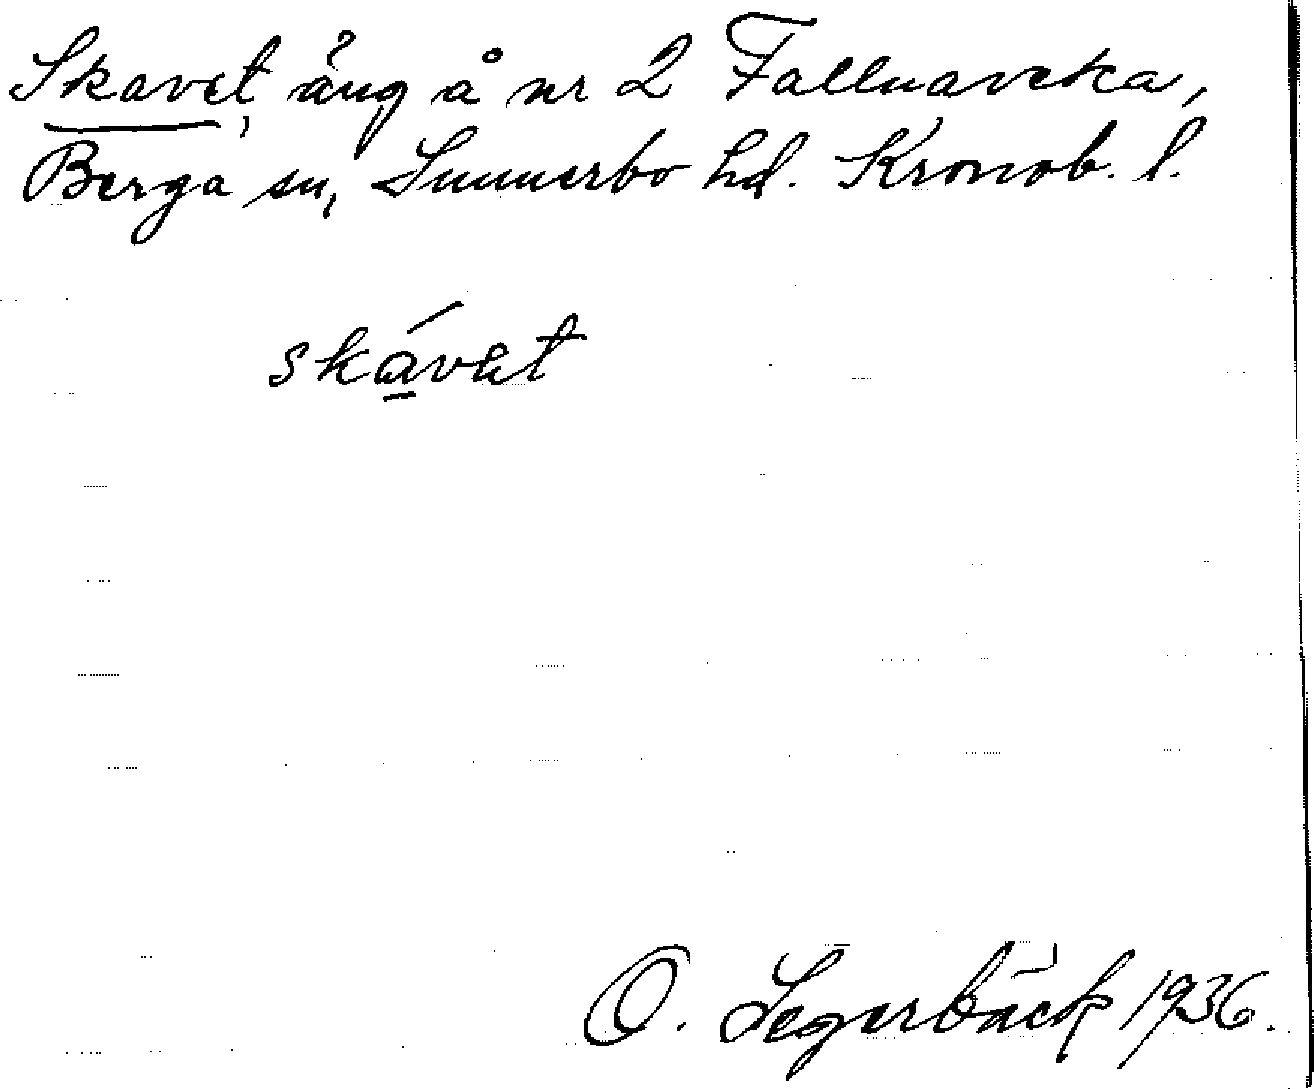 Skavet, äng å nr 2 Fallnaveka,
Berga sn, Sunnerbo hd. Kronob. l.
skávet
O. Segerbäck 1936.